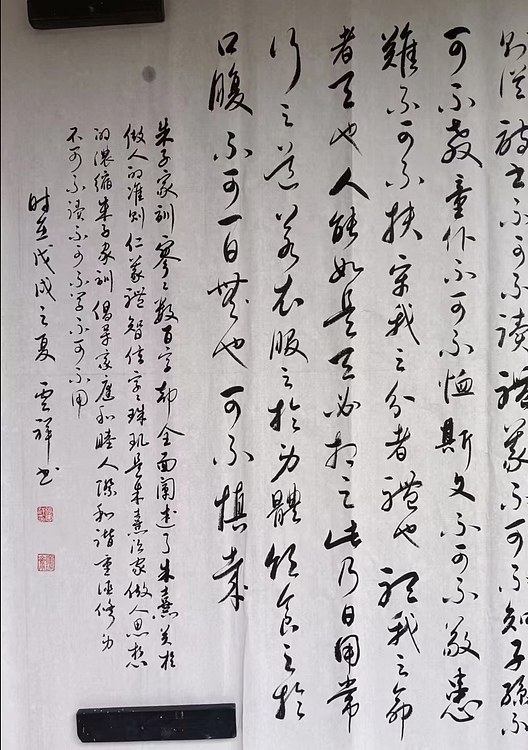 則從詩書不可不读禮義不可不知子孫不
可不教童仆不可不恤斯文不可不敬患
難不可不扶守我之分者禮也聽我之命
者天也人能如是天必相之此乃日用常
行之道若衣服之於身體飲食之於
口腹不可一日無也可不慎哉
朱子家訓寥寥数百字却全面阐述了朱熹关於
做人的准则仁義禮智信字字珠玑是朱熹治家做人思想
的濃缩朱子家訓倡导家庭和睦人际和谐重德修身
不可不读不可不学不可不用
时在戊戌之夏 雲祥书